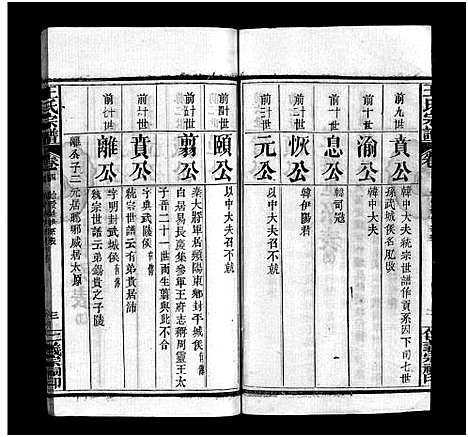 王氏宗譜
卷
前九世
賁公
韓中大夫統宗世譜作賁系因下司七世
孫武城侯名
前十世
渝公
韓中大夫
前十一世
息公
韓司寇
前十二世
恢公
韓伊陽君
前十三世
元公
以中大夫召不就
前十四世
頤公
以中大夫召不就
前十五世
翦公
秦大將軍居頻陽東鄉封平城侯
自居易長慶集參軍王府志稱周靈王太
子晉二十一世而生翦與此不合
前十六世
賁公
字典武陵侯
統宗世譜云有弟賁居沛
前十七世
離公
字明封武城侯
統宗世譜云弟錫賁之子陵
離公子二
元居瑯琊威居太原
王氏宗譜
卷
三